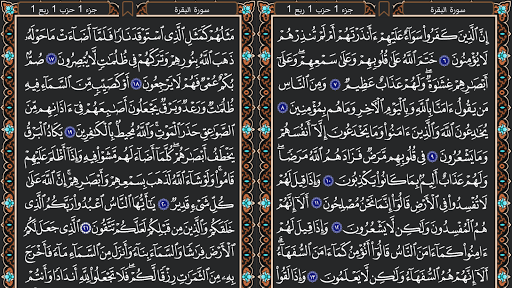 سورة البقرة
جزء 1 حزب 1 ربع 1
إِنَّ ٱلَّذِينَ كَفَرُوا۟ سَوَآءٌ عَلَيْهِمْ ءَأَنذَرْتَهُمْ أَمْ لَمْ تُنذِرْهُمْ
لَا يُؤْمِنُونَ ٦ خَتَمَ ٱللَّهُ عَلَىٰ قُلُوبِهِمْ وَعَلَىٰ سَمْعِهِمْ وَعَلَىٰٓ
أَبْصَٰرِهِمْ غِشَٰوَةٌ وَلَهُمْ عَذَابٌ عَظِيمٌ ٧ وَمِنَ ٱلنَّاسِ
مَن يَقُولُ ءَامَنَّا بِٱللَّهِ وَبِٱلْيَوْمِ ٱلْءَاخِرِ وَمَا هُم بِمُؤْمِنِينَ ٨
يُخَٰدِعُونَ ٱللَّهَ وَٱلَّذِينَ ءَامَنُوا۟ وَمَا يَخْدَعُونَ إِلَّآ أَنفُسَهُمْ
وَمَا يَشْعُرُونَ ٩ فِى قُلُوبِهِم مَّرَضٌ فَزَادَهُمُ ٱللَّهُ مَرَضًا
وَلَهُمْ عَذَابٌ أَلِيمٌۢ بِمَا كَانُوا۟ يَكْذِبُونَ ١٠ وَإِذَا قِيلَ لَهُمْ
لَا تُفْسِدُوا۟ فِى ٱلْأَرْضِ قَالُوٓا۟ إِنَّمَا نَحْنُ مُصْلِحُونَ ١١ أَلَآ إِنَّهُمْ
هُمُ ٱلْمُفْسِدُونَ وَلَٰكِن لَّا يَشْعُرُونَ ١٢ وَإِذَا قِيلَ لَهُمْ
ءَامِنُوا۟ كَمَآ ءَامَنَ ٱلنَّاسُ قَالُوٓا۟ أَنُؤْمِنُ كَمَآ ءَامَنَ ٱلسُّفَهَآءُ
أَلَآ إِنَّهُمْ هُمُ ٱلسُّفَهَآءُ وَلَٰكِن لَّا يَعْلَمُونَ ١٣ وَإِذَا لَقُوا۟
سورة البقرة
جزء 1 حزب 1 ربع 1
مَثَلُهُمْ كَمَثَلِ ٱلَّذِى ٱسْتَوْقَدَ نَارًا فَلَمَّآ أَضَآءَتْ مَا حَوْلَهُۥ
ذَهَبَ ٱللَّهُ بِنُورِهِمْ وَتَرَكَهُمْ فِى ظُلُمَٰتٍ لَّا يُبْصِرُونَ ١٧ صُمٌّۢ
بُكْمٌ عُمْىٌ فَهُمْ لَا يَرْجِعُونَ ١٨ أَوْ كَصَيِّبٍ مِّنَ ٱلسَّمَآءِ فِيهِ
ظُلُمَٰتٌ وَرَعْدٌ وَبَرْقٌ يَجْعَلُونَ أَصَٰبِعَهُمْ فِىٓ ءَاذَانِهِم مِّنَ
ٱلصَّوَٰعِقِ حَذَرَ ٱلْمَوْتِ وَٱللَّهُ مُحِيطٌۢ بِٱلْكَٰفِرِينَ ١٩ يَكَادُ ٱلْبَرْقُ
يَخْطَفُ أَبْصَٰرَهُمْ كُلَّمَآ أَضَآءَ لَهُم مَّشَوْا۟ فِيهِ وَإِذَآ أَظْلَمَ عَلَيْهِمْ
قَامُوا۟ وَلَوْ شَآءَ ٱللَّهُ لَذَهَبَ بِسَمْعِهِمْ وَأَبْصَٰرِهِمْ إِنَّ ٱللَّهَ عَلَىٰ
كُلِّ شَىْءٍ قَدِيرٌ ٢٠ يَٰٓأَيُّهَا ٱلنَّاسُ ٱعْبُدُوا۟ رَبَّكُمُ ٱلَّذِى
خَلَقَكُمْ وَٱلَّذِينَ مِن قَبْلِكُمْ لَعَلَّكُمْ تَتَّقُونَ ٢١ ٱلَّذِى جَعَلَ لَكُمُ
ٱلْأَرْضَ فِرَٰشًا وَٱلسَّمَآءَ بِنَآءً وَأَنزَلَ مِنَ ٱلسَّمَآءِ مَآءً فَأَخْرَجَ
بِهِۦ مِنَ ٱلثَّمَرَٰتِ رِزْقًا لَّكُمْ فَلَا تَجْعَلُوا۟ لِلَّهِ أَندَادًا وَأَنتُمْ